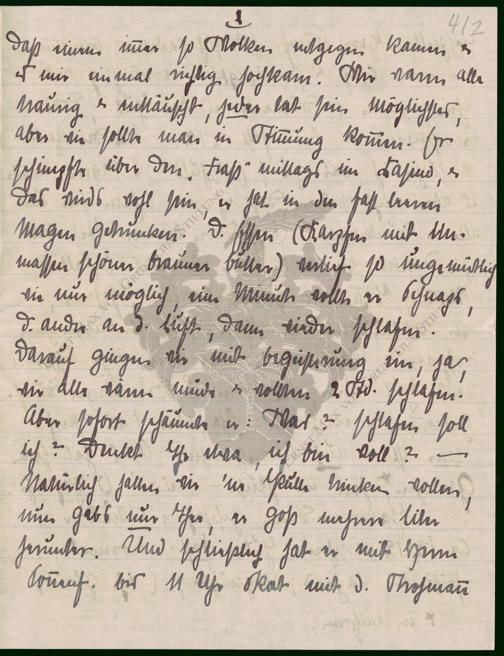 1
4/2
daß einem immer so Wolken entgegen kamen &
mir einmal richtig hochkam. Wir waren alle
traurig & enttäuscht, jeder tat sein Möglichstes,
aber wie sollte man in Stimmung kommen. Er
schimpfte über den „Fraß" mittags im Kasino, &
das wirds wohl sein, er hat in den fast leeren
Magen getrunken. D. Essen (Karpfen mit Un-
massen schöner brauner Butter) verlief so ungemütlich
wie nur möglich, eine Minute wollte er Schnaps,
d. andre an d. Luft, dann wieder schlafen.
Darauf gingen wir mit Begeisterung ein, ja,
wir alle wären müde & wollten 2 Std. schlafen.
Aber sofort schäumte er: Was? schlafen soll
ich? Denkt Ihr etwa, ich bin voll? —
Natürlich hatten wir 'ne Pulle trinken wollen,
nun gabs nur Tee, er goß mehrere Liter
herunter. Und schließlich hat er mit Herrn
bis 11 Uhr Skat mit d. Strohmann